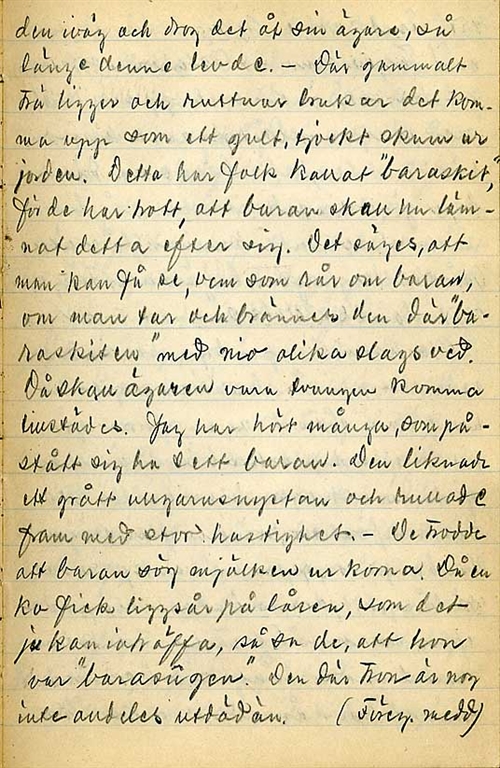 den iväg och drog det åt sin ägare, så
länge denne levde. – Där gammalt
trä ligger och ruttnar brukar det kom-
ma upp som ett gult, tjockt skum ur
jorden. Detta har folk kallat "baraskit,"
för de har trott, att baran skall ha läm-
nat detta efter sig. Det säges, att
man kan få se, vem som rår om baran,
om man tar och bränner den där "ba-
raskiten" med nio olika slags ved.
Då skall ägaren vara tvungen komma
tillstädes. Jag har hört många, som på-
stått sig ha sett baran. Den liknade
ett grått ullgarnsnystan och rullade
fram med stor hastighet. – De trodde
att baran sög mjölken ur korna. Då en
ko fick liggsår på låren, som det
ju kan inträffa, så sa de, att hon
var "barasugen". Den där tron är nog
inte alldeles utdöd än. (Föreg. medd)